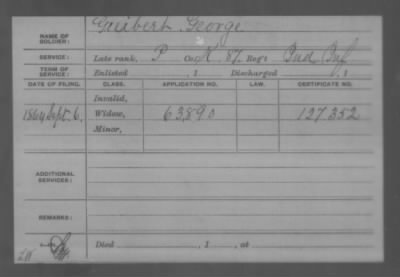 NAME OF SOLDIER: Gaubert George
SERVICE: Late rank, P Co. K, 87, Reg't Ind Inf
TERM OF SERVICE: Enlisted , 1 Discharged , 1
DATE OF FILING. CLASS. APPLICATION NO. LAW. CERTIFICATE NO.
Invalid,
1864 Sept. 6, Widow, 63,890 127,352
Minor,
ADDITIONAL SERVICES:
REMARKS:
Died , 1 , at